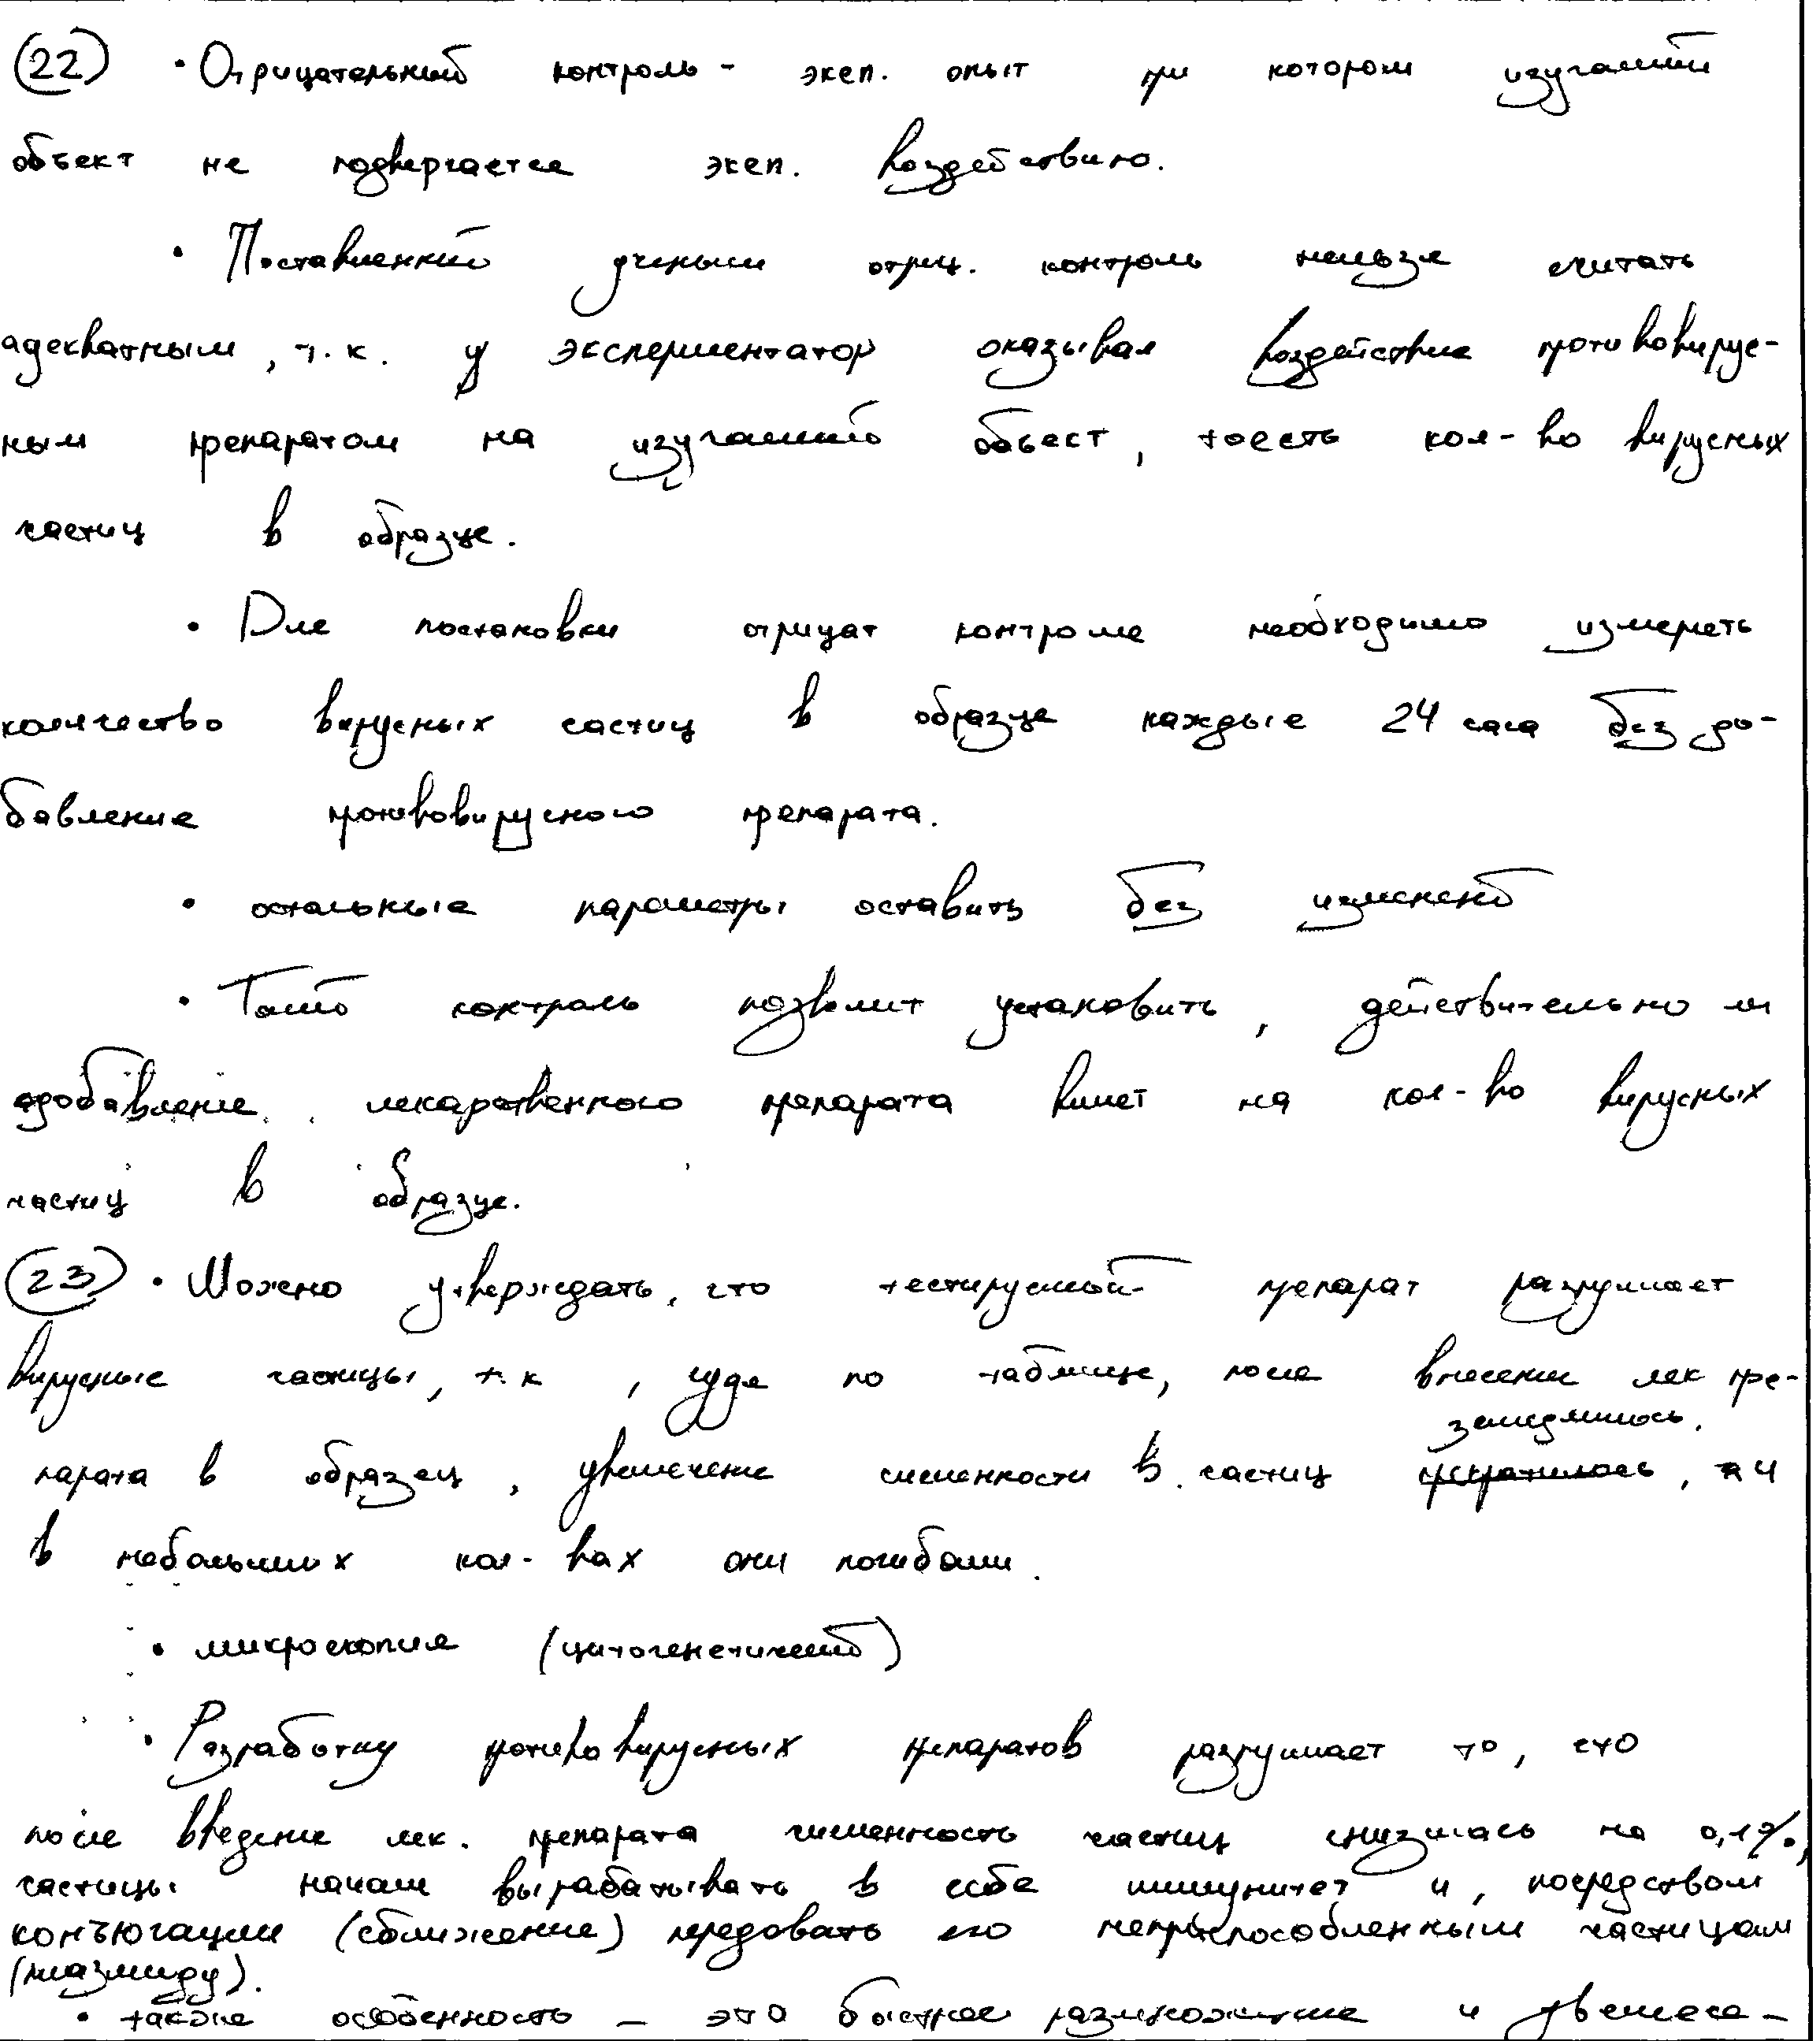 (22) • Отрицательный контроль - эксп. опыт при котором изучаемый
объект не подвергается эксп. воздействию.
• Поставленный учеными отриц. контроль нельзя считать
адекватным, т.к. у экспериментатор оказывал воздействие противовирус-
ным препаратом на изучаемый объест, тоесть кол-во вирусных
частиц в образце.
• Для постановки отрицат контроля необходимо измерять
количество вирусных частиц в образце каждые 24 часа без до-
бавление противовирусного препарата.
• остальные параметры оставить без изменений
• Такой контроль позволит установить, действительно ли
добавление лекарственного препарата влияет на кол-во вирусных
частиц в образце.
(23) • Можно утверждать, что тестируемый препарат разрушает
вирусные частицы, т.к, судя по таблице, после внесения лек пре-
замедлилось.
парата в образец, увеличение численности в. частиц прекратилось, и
в небольших кол-вах они погибали.
• микроскопия (цитогенетический)
• Разработку противовирусных препаратов разрушает то, что
после введение лек. препарата численность частиц снизилась на 0,1%,
частицы начали вырабатывать в себе иммунитет и, посредством
конъюгации (сближение) передовать его неприспособленным частицам
(плазмиду).
• также особенность – это быстрое размножение и